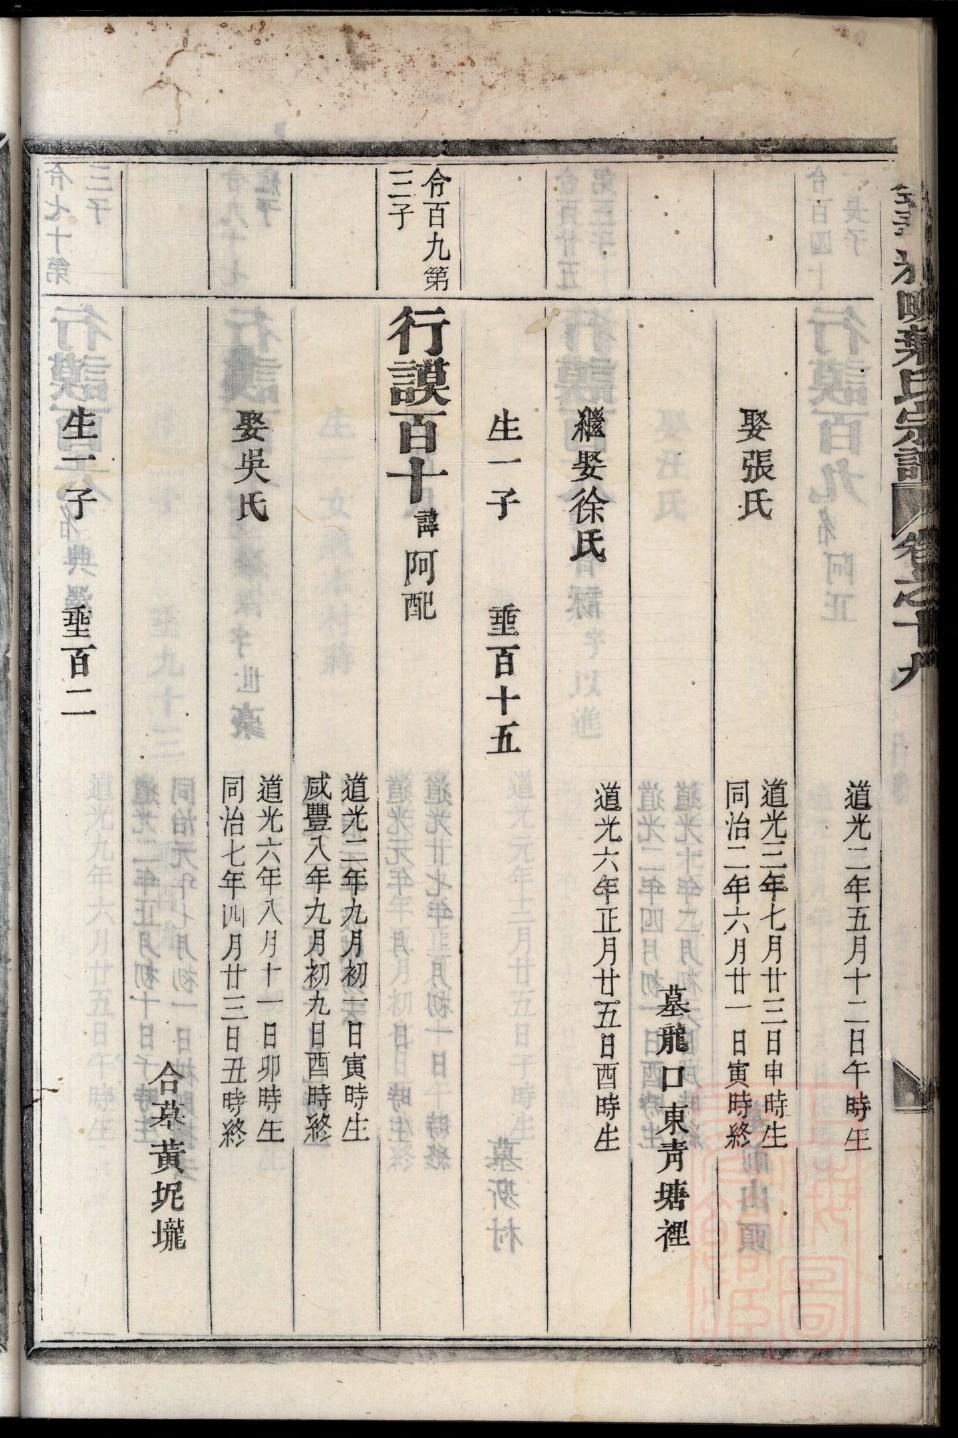 葉氏宗譜 卷之十九
道光二年五月十二日午時生
娶張氏
道光三年七月廿三日申時生
同治二年六月廿一日寅時終
墓龍口東青塘裡
繼娶徐氏
道光六年正月廿五日酉時生
生一子 垂百十五
令百九第
三子
行謨百十 諱阿配
道光二年九月初一日寅時生
咸豐八年九月初九日酉時終
娶吳氏
道光六年八月十一日卯時生
同治七年四月廿三日丑時終
合墓黃坭壠
生一子 垂百二